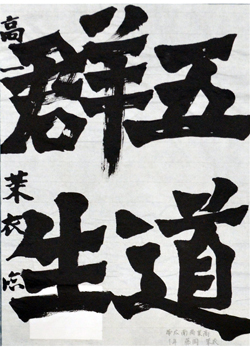 五道
群生
高一 茉衣 臨